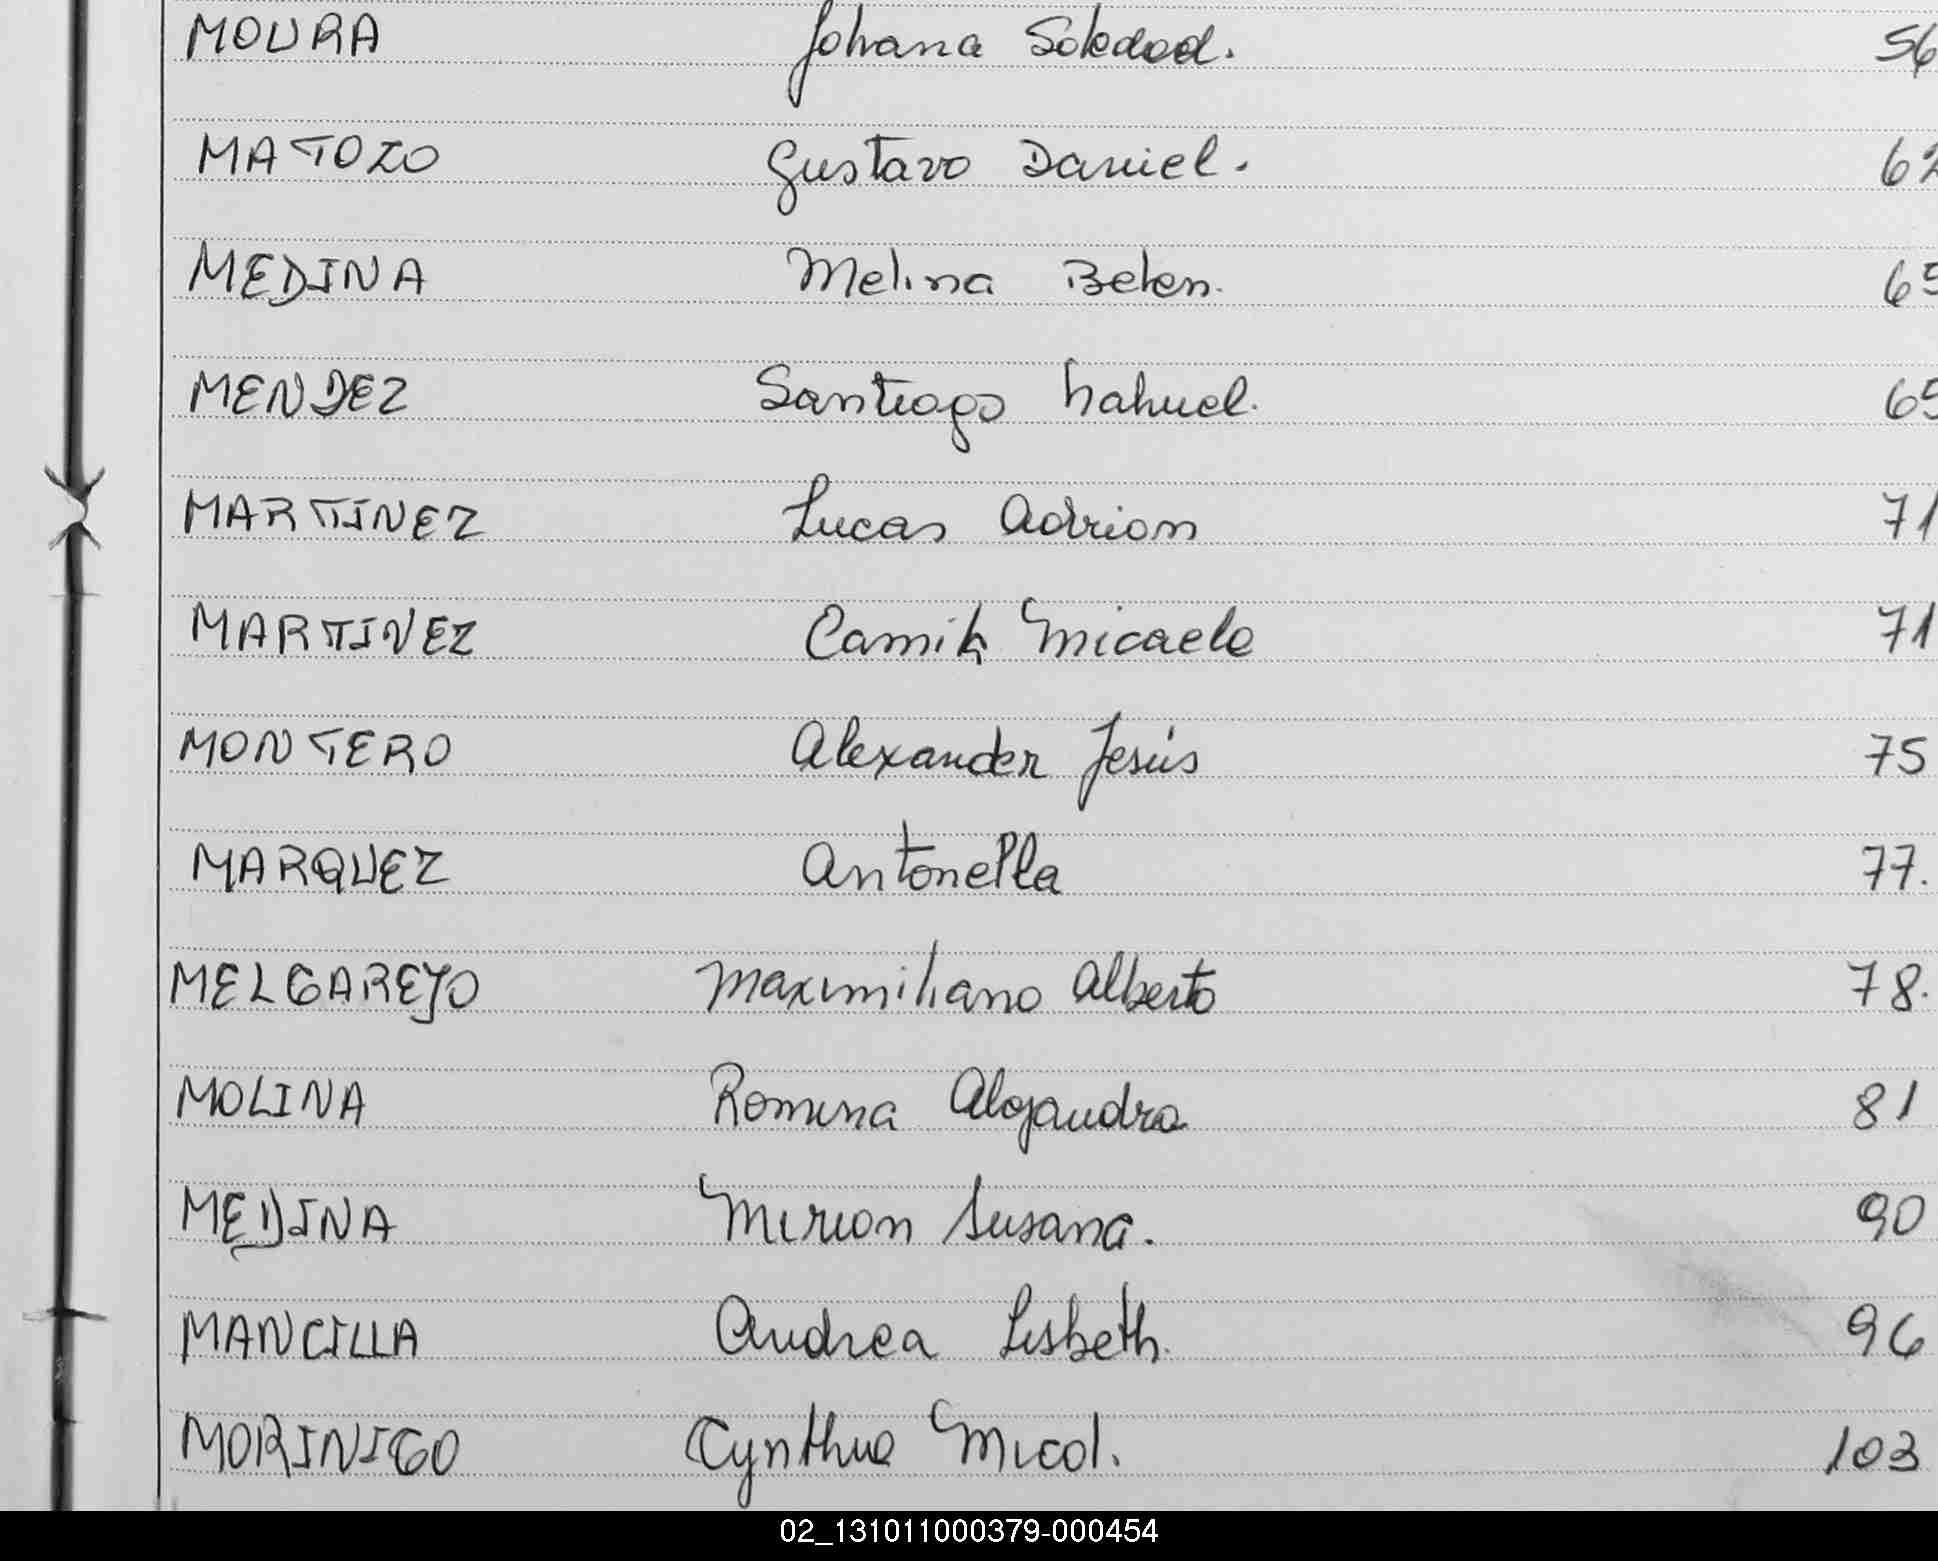 MOURA Johana Soledad. 56
MATOZO Gustavo Daniel. 62
MEDINA Melina Belen. 65
MENDEZ Santiago Nahuel. 65
MARTINEZ Lucas Adrian 71
MARTINEZ Camila Micaela 71
MONTERO Alexander Jesús 75
MARQUEZ Antonella 77.
MELGAREJO Maximiliano Alberto 78.
MOLINA Romina Alejandra 81
MEDINA Mirian Susana. 90
MANCILLA Andrea Lisbeth. 96
MORINIGO Cynthia Micol. 103
02_131011000379-000454